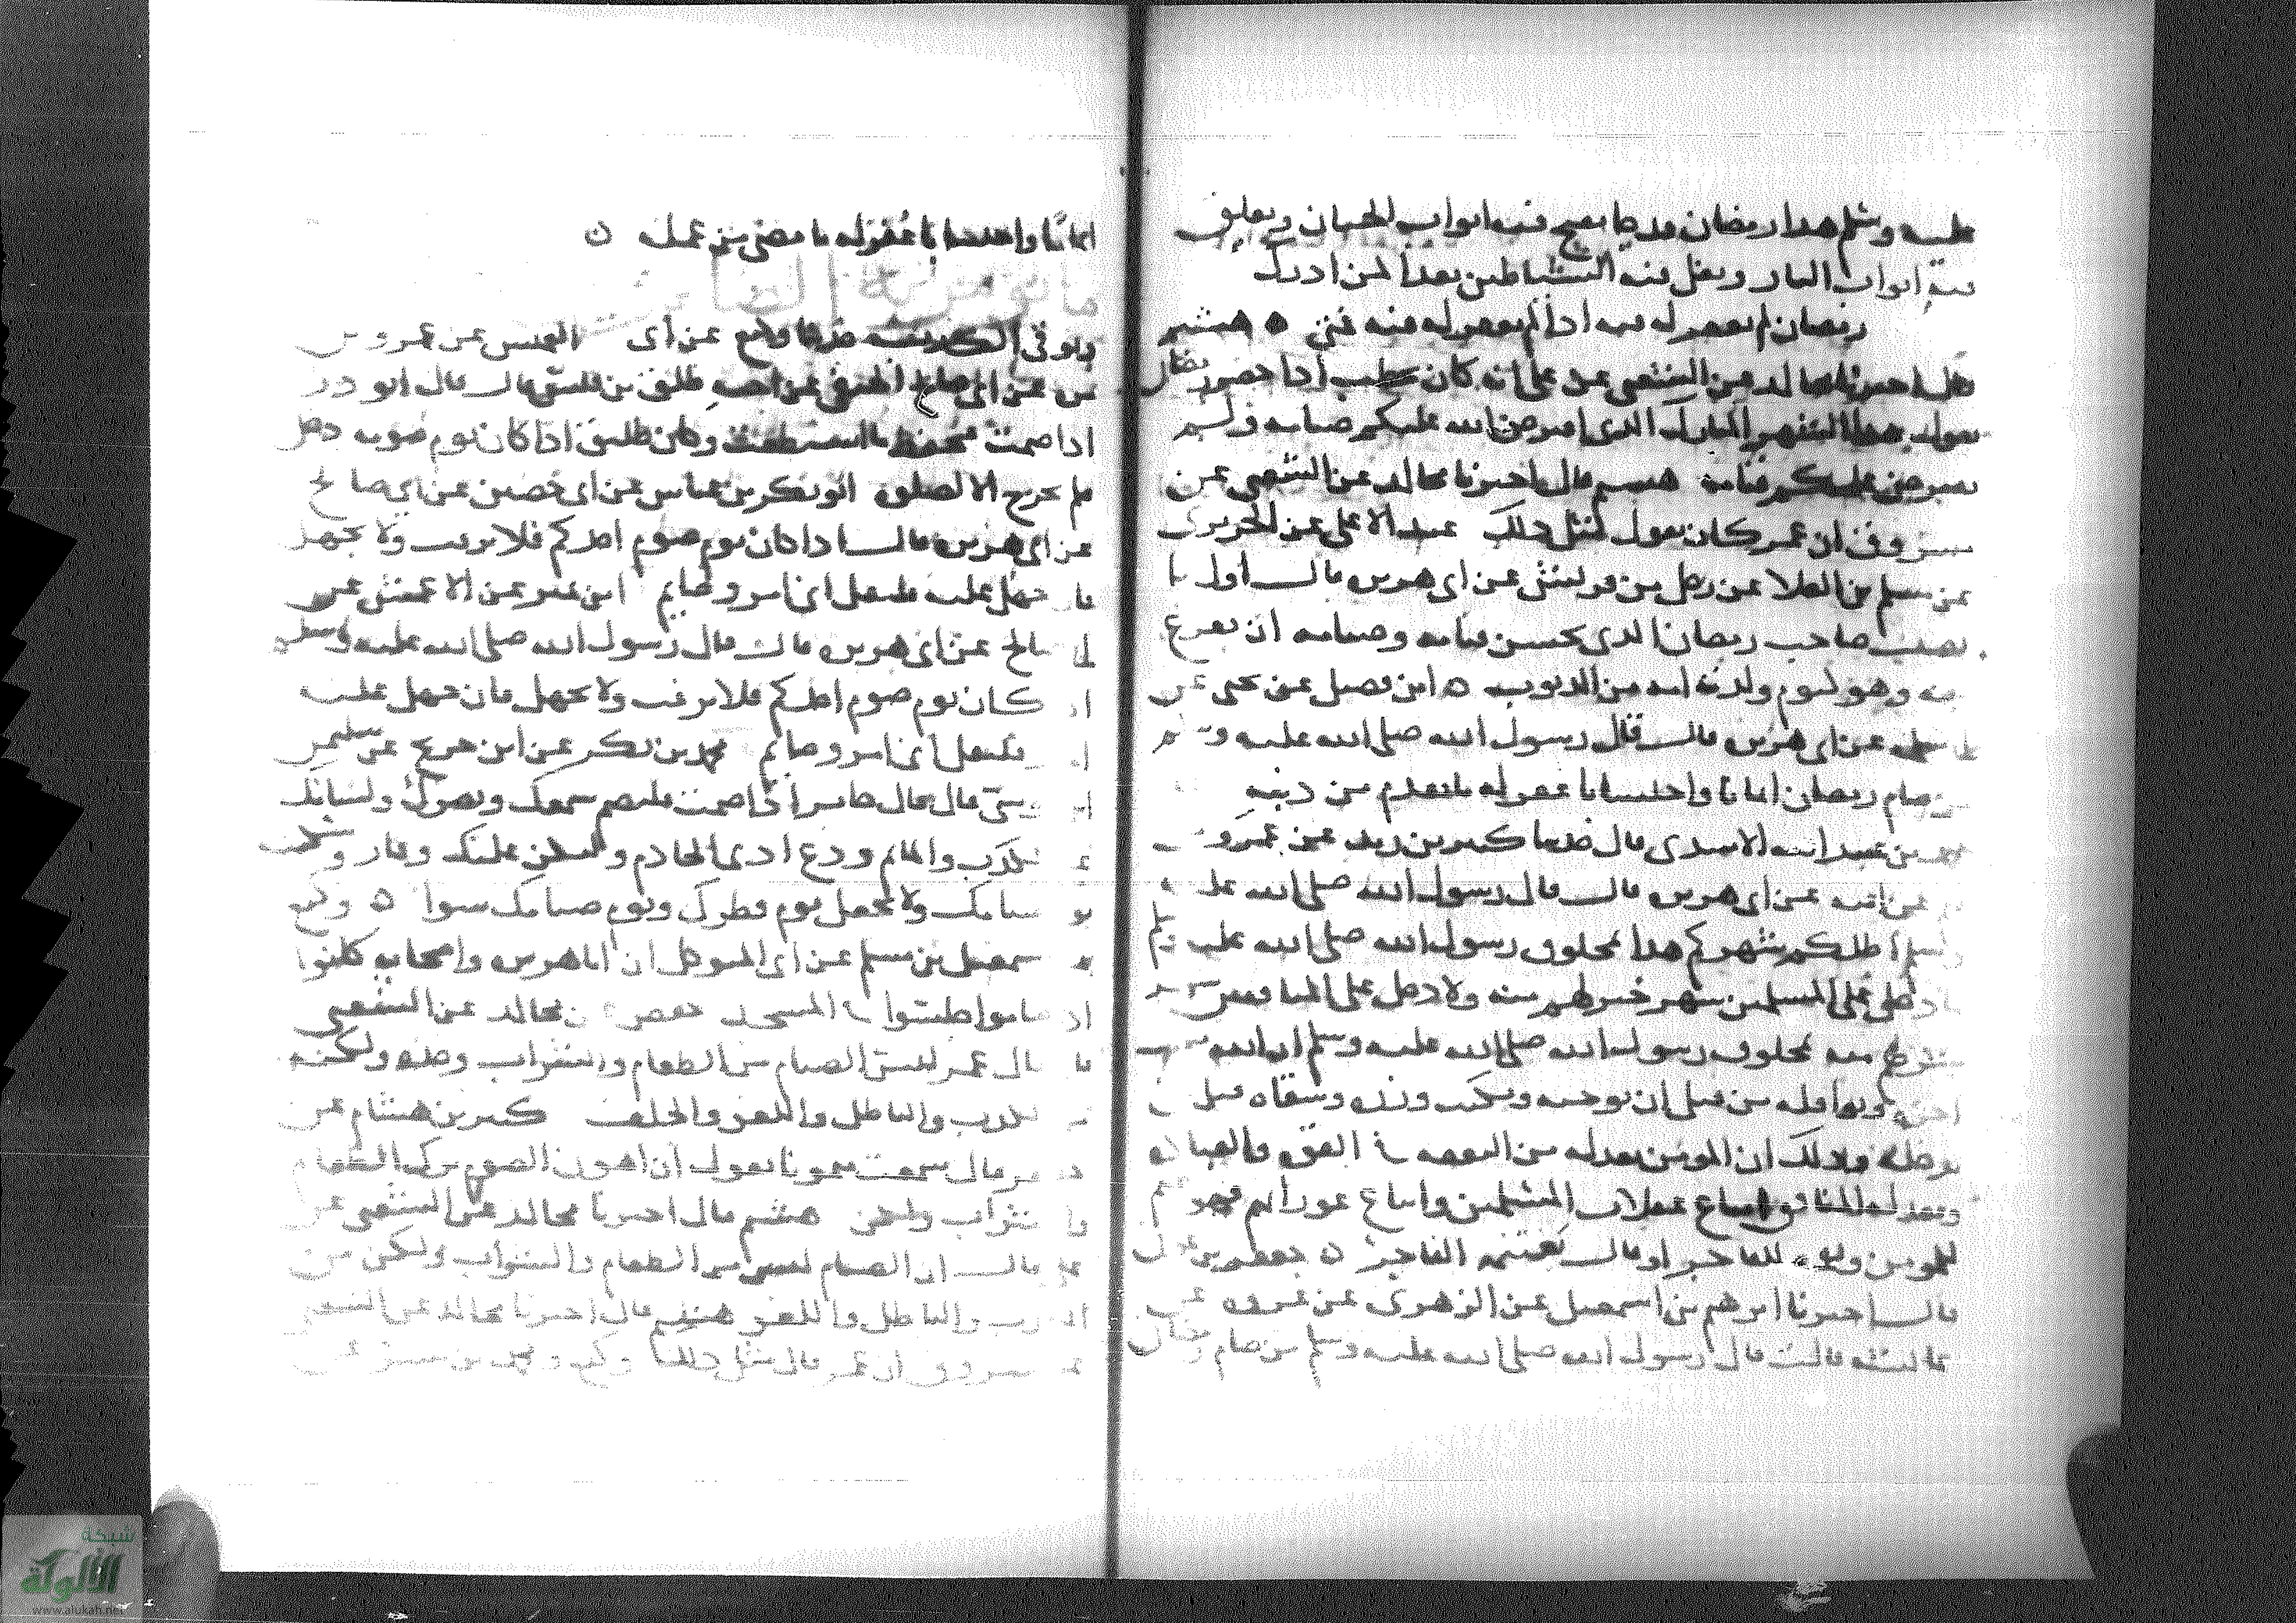 عليه وسلم هذا رمضان قد جا تفتح فيه ابواب الجنان وتغلق
فيه ابواب النار وتغل فيه الشياطين بعدا لمن ادرك
رمضان لم يغفر له فيه اذا لم يغفر له فيه فمتى ه هشيم
قال اخبرنا مجالد عن الشعبي عن علي انه كان يخطب اذا حضر رمضان
يقول هذا الشهر المبارك الذي افترض الله عليكم صيامه ولم
يفترض عليكم قيامه هشيم قال اخبرنا مجالد عن الشعبي عن
مسروق ان عمر كان يقول مثل ذلك عبد الاعلى عن الجريري
عن مسلم بن العلا عن رجل من قريش عن ابي هريرة قال اول ما
يصيب صاحب رمضان الذي يحسن قيامه وصيامه ان يفرغ
منه وهو كيوم ولدته امه من الذنوب ه ابن فضيل عن يحيى عن
ابي سلمة عن ابي هريرة قال قال رسول الله صلى الله عليه وسلم
من صام رمضان ايمانا واحتسابا غفر له ما تقدم من ذنبه
محمد بن عبد الله الاسدي قال حدثنا كثير بن زيد عن عمرو بن
عن ابيه عن ابي هريرة قال قال رسول الله صلى الله عليه
وسلم اظلكم شهركم هذا بمحلوف رسول الله صلى الله عليه وسلم
ما دخل على المسلمين شهر خير لهم منه ولا دخل على المنافقين شهر
شر لهم منه بمحلوف رسول الله صلى الله عليه وسلم ان الله
اجره ونوافله من قبل ان يوجبه ويكتب وزره وشقاه قبل ان
يدخله وذلك ان المومن يعد له من النفقة في القوة والعبادة
ويعد له المنافق اتباع غفلات المسلمين واتباع عوراتهم فهو غنم
للمومن للفاجر او قال يغتنمه الفاجر ن جعفر بن عون
قال اخبرنا ابرهيم بن اسمعيل عن الزهري عن عروة عن
عائشة قالت قال رسول الله صلى الله عليه وسلم من صام رمضان
ايمانا واحتسابا غفر له ما مضى من عمله ن
حدثنا وكيع عن ابي العميس عن عمرو بن
عن ابي صالح الحنفي عن اخيه طليق بن قيس قال قال ابو ذر
اذا صمت فتحفظ ما استطعت وكان طليق اذا كان يوم صومه دخل
فلم يخرج الا لصلوة ابو بكر بن عياش عن ابي حصين عن ابي صالح
عن ابي هريرة قال اذا كان يوم صوم احدكم فلا يرفث ولا يجهل
فان جهل عليه فليقل اني امرو صايم ابن نمير عن الاعمش عن
ابي صالح عن ابي هريرة قال قال رسول الله صلى الله عليه وسلم
اذا كان يوم صوم احدكم فلا يرفث ولا يجهل فان جهل عليه
فليقل اني امرو صايم محمد بن بكر عن ابن جريج عن سليمن
بن موسى قال قال جابر اذا صمت فليصم سمعك وبصرك ولسانك
عن الكذب والماثم ودع اذى الخادم وليكن عليك وقار وسكينة
يوم صيامك ولا تجعل يوم فطرك ويوم صيامك سوا ه وكيع
عن اسمعيل بن مسلم عن ابي المتوكل ان ابا هريرة واصحابه كانوا
اذا صاموا جلسوا في المسجد حفص عن مجالد عن الشعبي
قال قال عمر ليس الصيام من الطعام والشراب وحده ولكنه
من الكذب والباطل واللغو والحلف كثير بن هشام عن
جعفر قال سمعت ميمونا يقول ان اهون الصوم ترك الطعام
والشراب هشيم قال اخبرنا مجالد عن الشعبي عن
علي قال ان الصيام ليس من الطعام والشراب ولكن من
الكذب والباطل واللغو هشيم قال اخبرنا مجالد عن الشعبي
عن مسروق ان عمر قال مثل ذلك وكيع ومحمد بن بشر عن
شبكة
الألوكة
www.alukah.net